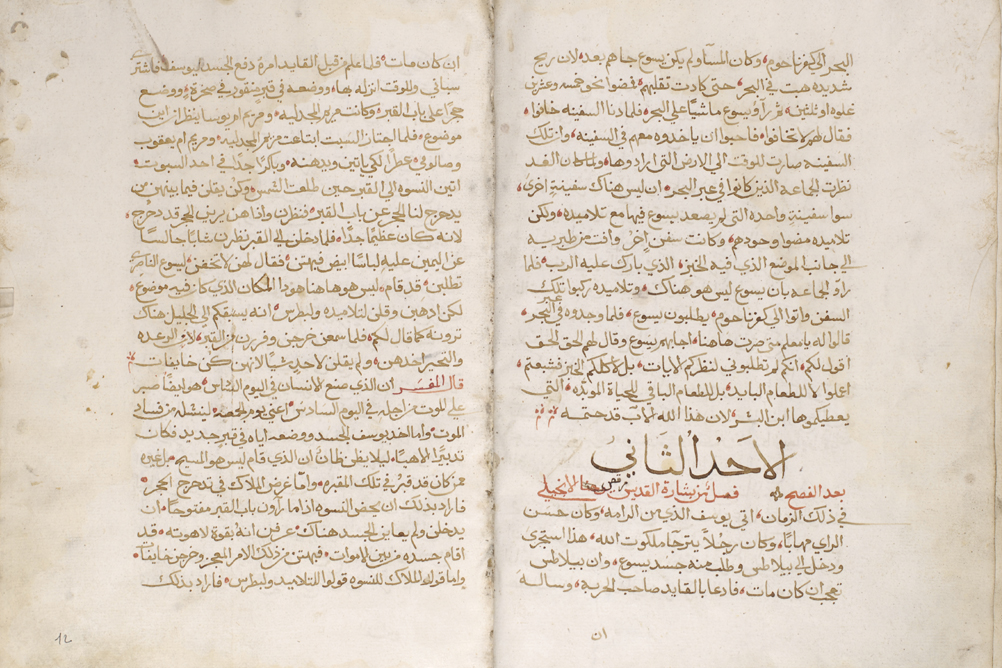 البحر الى كفرناحوم، وكان المسآ ولم يكن يسوع جاهم بعد، لان ريح
شديده هبت في البحر، حتى كادت تقلبهم، فمضوا نحو خمسه وعشرين
غلوه او ثلثين، فرآوا يسوع ماشيًا على البحر، فلما دنا السفينه خافوا،
فقال لهم لا تخافوا، فاحبوا ان ياخدوه معهم في السفينه، وان تلك
السفينه صارت للوقت الي الارض التي ارادوها، ولما كان الغد
نظرت الجماعة الذين كانوا في عبر البحر، ان ليس هناك سفينة اخرى،
سوا سفينة واحده التي لم يصعد يسوع فيها مع تلاميده، ولكن
تلاميده مضوا وحودهم، وكانت سفن اخر وافت من طبريه
الي جانب الموضع الذي فيه الخبز، الذي بارك عليه الرب، فلما
راو الجماعه بان يسوع ليس هو هناك، وتلاميده ركبوا تلك
السفن واتوا الي كفرناحوم، يطلبون يسوع، فلما وجدوه في عبر البحر،
قالوا له يا معلم متى صرت هاهنا، اجابهم يسوع وقال لهم الحق الحق
اقول لكم، انكم لم تطلبوني لنظركم الايات، بل لاكلكم الخبز فشبعتم،
اعلوا لا للطعام البايد، بل للطعام الباقي للحياة الموبده، التي
يعطيكموها ابن البشر، لان هذا الله الاب قد ختمه
الاحد الثاني
بعد الفصح فصل من بشارة القديس مرقص الانجيلي
في ذلك الزمان، اتي يوسف الذي من الرامه، وكان حسن
الراي مهابًا، وكان رجلًا يترجا ملكوت الله، هذا استجرى
ودخل الي بيلاطس وطلب منه جسد يسوع، وان بيلاطس
تعجب ان كان مات، فادعا بالقايد صاحب الحربة، وساله
ان
ان كان مات، فلما علم من قبل القايد امره دفع الجسد ليوسف، فاشترى
سباني وللوقت انزله بها، ووضعه في قبر منقور في صخرة، ووضع
حجرًا على باب القبر، وكانت مريم المجدليه، ومريم ام يوسا ينظران اين
موضوع، فلما اجتاز السبت ابتاعت مريم المجدليه، ومريم ام يعقوب
وصالومي، عطرًا لكي ياتين ويدهنه، وباكرًا جدًا في احد السبوت،
اتين النسوه الي القبر حين طلعت الشمس، وكن يقلن فيما بينهن من
يدحرج لنا الحجر عن باب القبر، فنظرن واذا هن يرين الحجر قد دحرج،
لانه كان عظيمًا جدًا، فلما دخلن الى القبر نظرن شابًا جالسًا
عن اليمين عليه لباسًا ابيض فبهتن، فقال لهن لا تخفن، ليسوع الناصري
تطلبن، قد قام، ليس هو هاهنا هوذا المكان الذي كان فيه موضوع،
لكن ادهبن وقلن لتلاميده ولبطرس، انه يسبقكم الي الجليل هناك
ترونه كما قال لكم، فلما سمعن خرجن وفررن من القبر، لان الرعده
والتحير اخدهن، ولم يقلن لاحد شيًا لانهن كن خايفات
قال المفسر ان الذي صنع الانسان في اليوم السادس، هو ايضًا صبر
على الموت من اجله في اليوم السادس، اعني يوم الجمعه، لينشله من فساد
الموت، واما اخد يوسف الجسد ووضعه اياه في قبر جديد فكان
تدبيرًا الاهيًا، ليلا يظن ظانٌ ان الذي قام ليس هو المسيح، بل غيره
ممن كان قد قبر في تلك المقبره، واما غرض الملاك في تدحرج الحجر،
فاراد بذلك ان يحقق النسوه اذا ما راون باب القبر مفتوحًا، ان
يدخلن ولم يعاين الجسد هناك، عرفن انه بقوة لاهوته، قد
اقام جسده من بين الاموات، فبهتن من ذلك الامر المعجز، وخرجن خايفًا،
واما قول الملاك للنسوه قولوا للتلاميد ولبطرس، فاراد بذلك
12